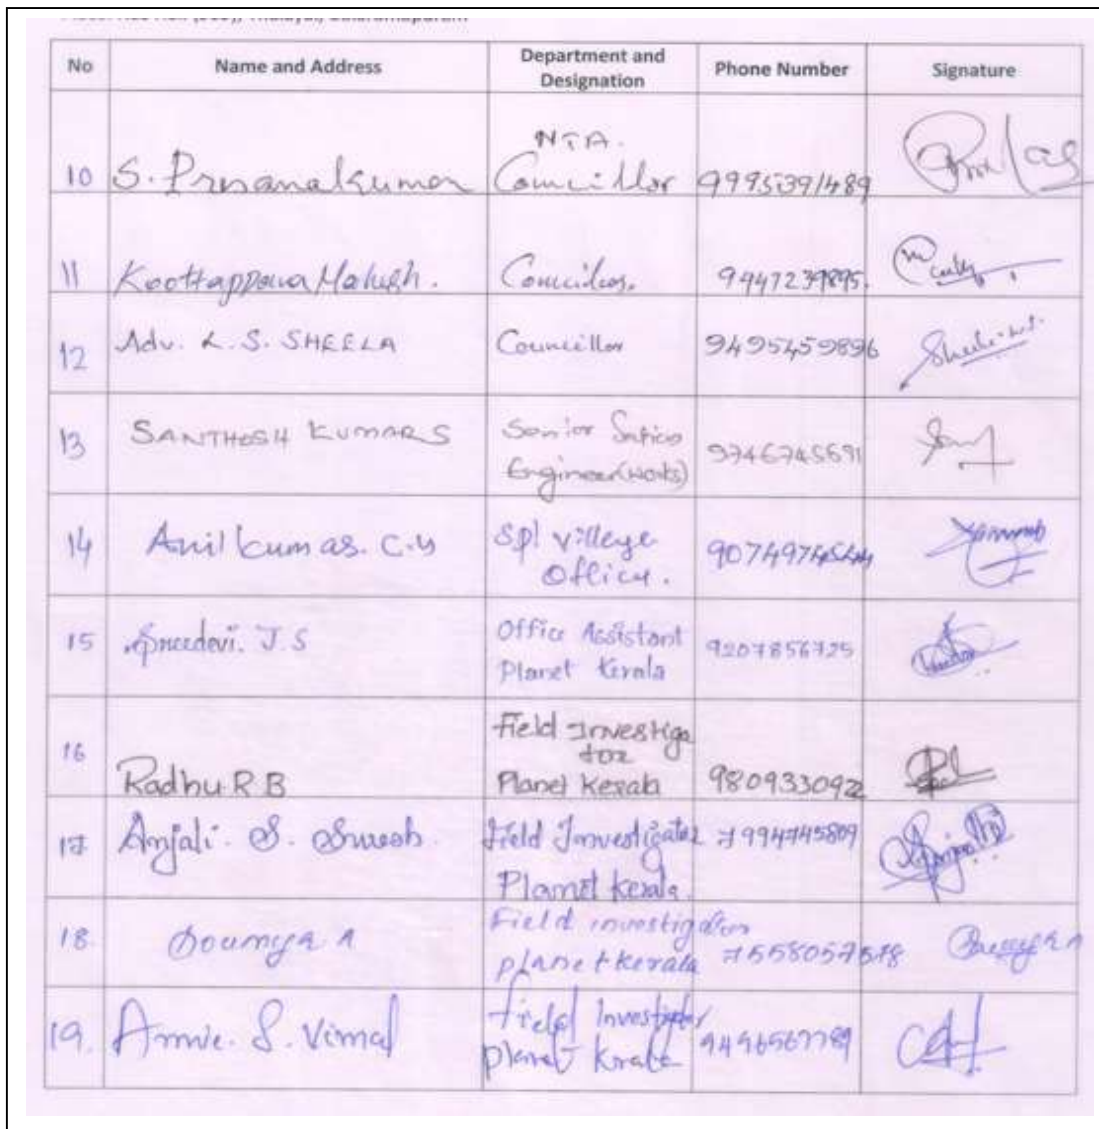 No Name and Address Department and Designation Phone Number Signature
10 S. Prasanakumar NTA. Councillor 9995391489
11 Koottappana Mahesh. Councilor. 9447239895.
12 Adv. L. S. SHEELA Councillor 9495459896
13 SANTHOSH KUMAR S Senior
Engineer (works) 9746745691
14 Anilkumar. C.S Spl village
Office. 90749
15 Sreedevi. J.S Office Assistant
Planet Kerala 9207856725
16 Radhu R B Field Investiga
tor
Planet Kerala 9809330922
17 Anjali. S. Suresh. Field Investigator
Planet Kerala. 7994745809
18. Soumya A Field investigator
planet kerala 7558057578
19. Annie. S. Vimal field Investigator
planet Kerala 9496567789